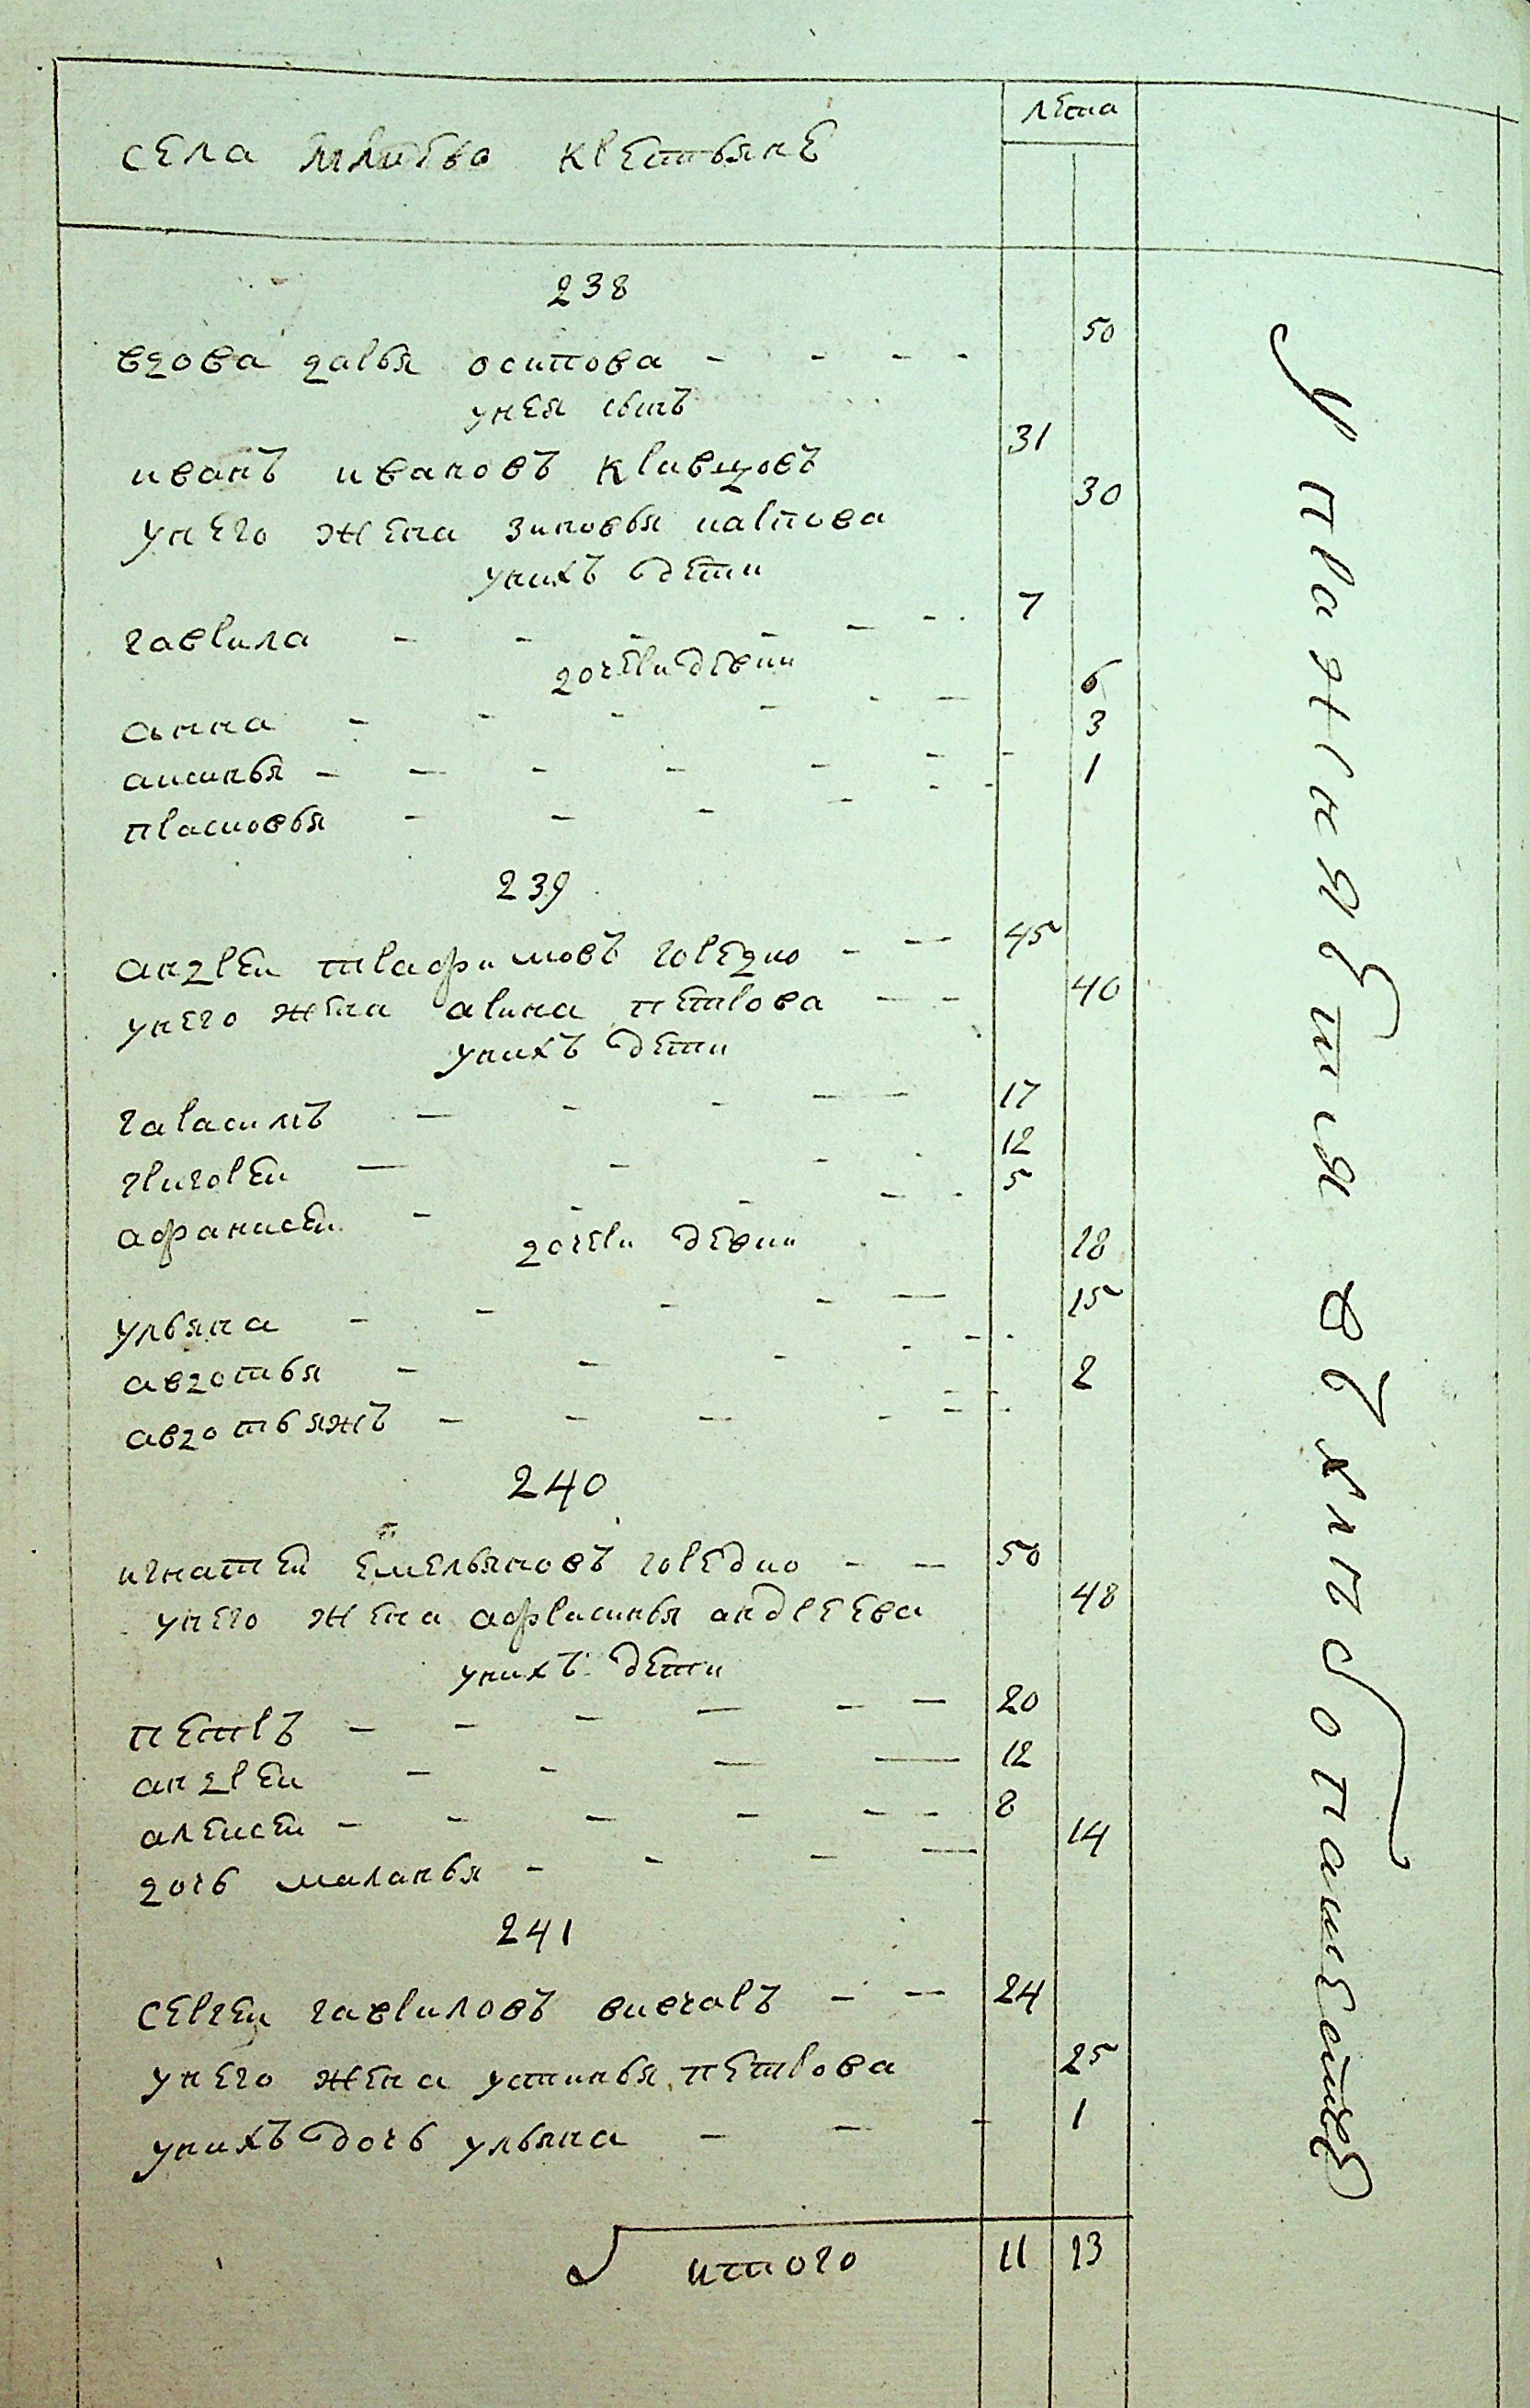 лѣта
села крестьяне
238
вдова дарья осипова - - - - 50
унея сынъ
иванъ ивановъ кравцовъ 31
унего жена зиновья карпова 30
унихъ дети
гаврила - - - - - - 7
дочери девки
анна - - - - - - 6
аксинья - - - - - - 3
прасковья - - - - - 1
239
андреи трафимовъ гаредко - - 45
унего жена арина петрова - - 40
унихъ дети
гарасимъ - - - - - 17
григореи - - - - 12
афанасеи - - - - - 5
дочери девки
ульяна - - - - - 18
авдотья - - - - - 15
авдотьяжъ - - - - - - 2
240
игнатей емельяновъ горедко - - 50
унего жена афрасинья андреева 48
унихъ дети
петръ - - - - - - 20
андреи - - - - 12
алексеи - - - - - - 8
дочь маланья - - - - 14
241
сергеи гавриловъ - - 24
унего жена устинья петрова 25
унихъ дочь ульяна - - - 1
итого 11 13